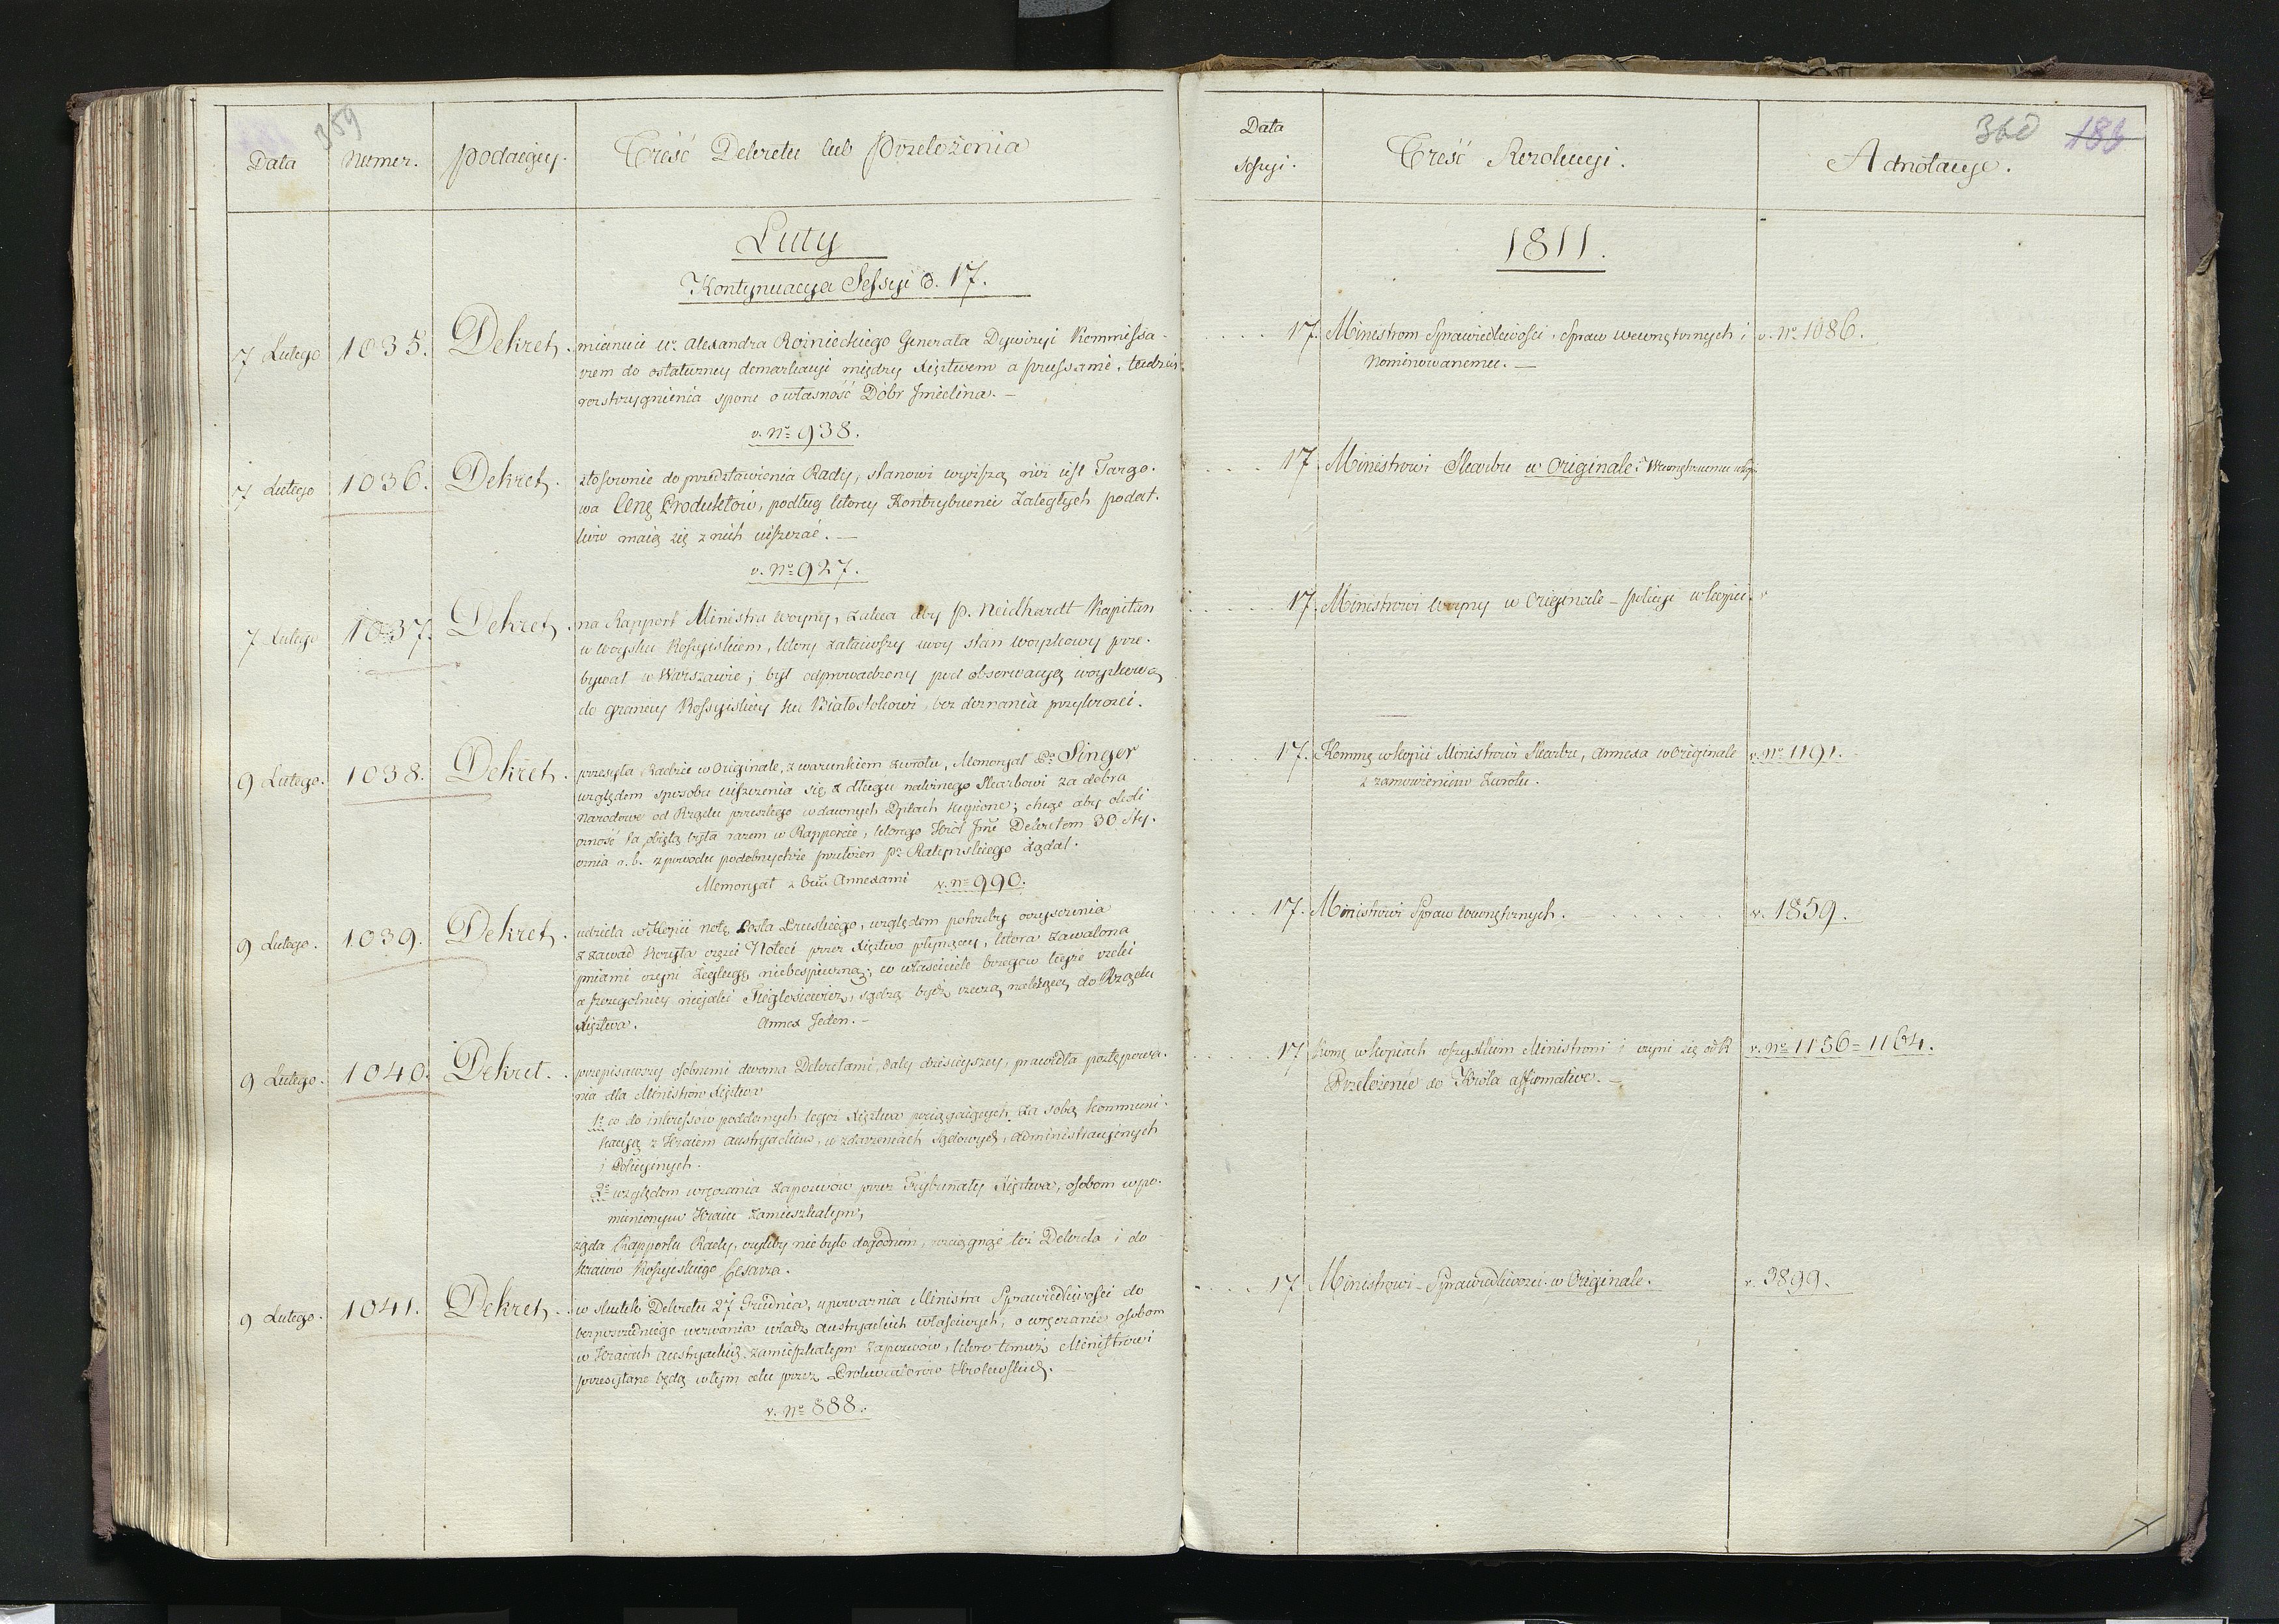 359
Data
Numer.
podaiący.
Treść Dekretu lub Przełożenia
Luty
Kontynuacya Sessyi d. 17.
7 Lutego
1035.
Dekret.
mianuie Ur. Alexandra Rożnieckiego Generała Dywizyi Kommissa-
rzem do ostateczney demarkacyi między Xięstwem a Prussami, tudzież
rozstrzygnienia sporu o własność Dóbr
v. No 938.
7 Lutego
1036.
Dekret.
stosownie do przedstawienia Rady, stanowi wyższą niż iest Targo-
wa Cenę Produktów, podług ktorey Kontrybuenci zaległych podat-
ków maią się z nich uiszczać. —
v. No 927.
7 Lutego
1037.
Dekret.
na Rapport Ministra Woyny, zaleca aby P. Neidhardt Kapitan
w woysku Rossyiskiem, ktory zataiwszy swoy stan woyskowy prze-
bywał w Warszawie; był odprowadzony pod obserwacyą woyskową
do granicy Rossyiskiey ku Białostokowi, bez doznania przykrości.
9 Lutego.
1038.
Dekret.
przesyła Radzie w Originale, z warunkiem zwrotu, Memoryał Po Singer
względem sposobu uiszczenia się z długu należnego Skarbowi za dobra
Narodowe od Rządu przeszłego w dawnych Dptach kupione; chcąc aby okoli
czność ta obięta była razem w Rapporcie, ktorego Król Jmć Dekretem 30 Sty-
cznia r. b. z powodu podobnychże przełożeń po Ratyńskiego żądał.
Memoryał z Annexami v. no 990.
9 Lutego.
1039.
Dekret.
udziela w Kopii notę Posła Pruskiego, względem potrzeby oczyszczenia
z zawad Koryta części Noteci przez Xięstwo płynącey, ktora zawalona
pniami czyni Żeglugę niebespieczną; co właściciele brzegow teyże rzeki
a szczegolniey nieiaki sądzą bydź rzeczą należącą do Rządu
Xięstwa. Annex Jeden. —
9 Lutego.
1040.
Dekret.
przepisawszy osobnemi dwoma Dekretami, daty dzisieyszey, prawidła postępowa-
nia dla Ministrow Xięstwa
1o co do interessow poddanych tegoż Xięstwa pociągaiących za sobą kommuni-
kacyą z Kraiem Austryackim, w zdarzeniach Sądowych, Administracyinych
i Policyinych.
2o względem wręczania Zapozwow przez Trybunały Xięstwa, osobom w po-
mienionym Kraiu zamieszkałym,
żąda Rapportu Rady, czyliby nie było dogodnem, rozciągnąć też Dekreta i do
kraiow Rossyiskiego Cesarza.
9 Lutego.
1041.
Dekret.
w skutek Dekretu 27 Grudnia, upoważnia Ministra Sprawiedliwości do
bezpośredniego wezwania władz Austryackich właściwych, o wręczanie osobom
w Kraiach Austryackich zamieszkałym Zapozwow, ktore temuż Ministrowi
przesyłane będą w tym celu przez Prokuratorów Krolewskich.
v. No 888.
Data
Sessyi.
Treść Rezolucyi.
360 183
Adnotacye.
1811.
17.
Ministrom Sprawiedliwości, Spraw Wewnętrznych i
Nominowanemu. —
v. No 1086.
17
Ministrowi Skarbu w Originale i Wewnętrznemu w kop.
17.
Ministrowi Woyny w Originale – Policyi w kopii.
17.
Komm. w kopii Ministrowi Skarbu, Annexa w Originale
z zamowieniem zwrotu.
v. No 1191.
17.
Ministrowi Spraw Wewnętrznych.
v. 1859.
17
Komm. w kopiach wszystkim Ministrom i czyni się
Przełożenie do Króla affirmative. —
v. No 1156 = 1164.
17
Ministrowi Sprawiedliwości w Originale.
v. 3899.